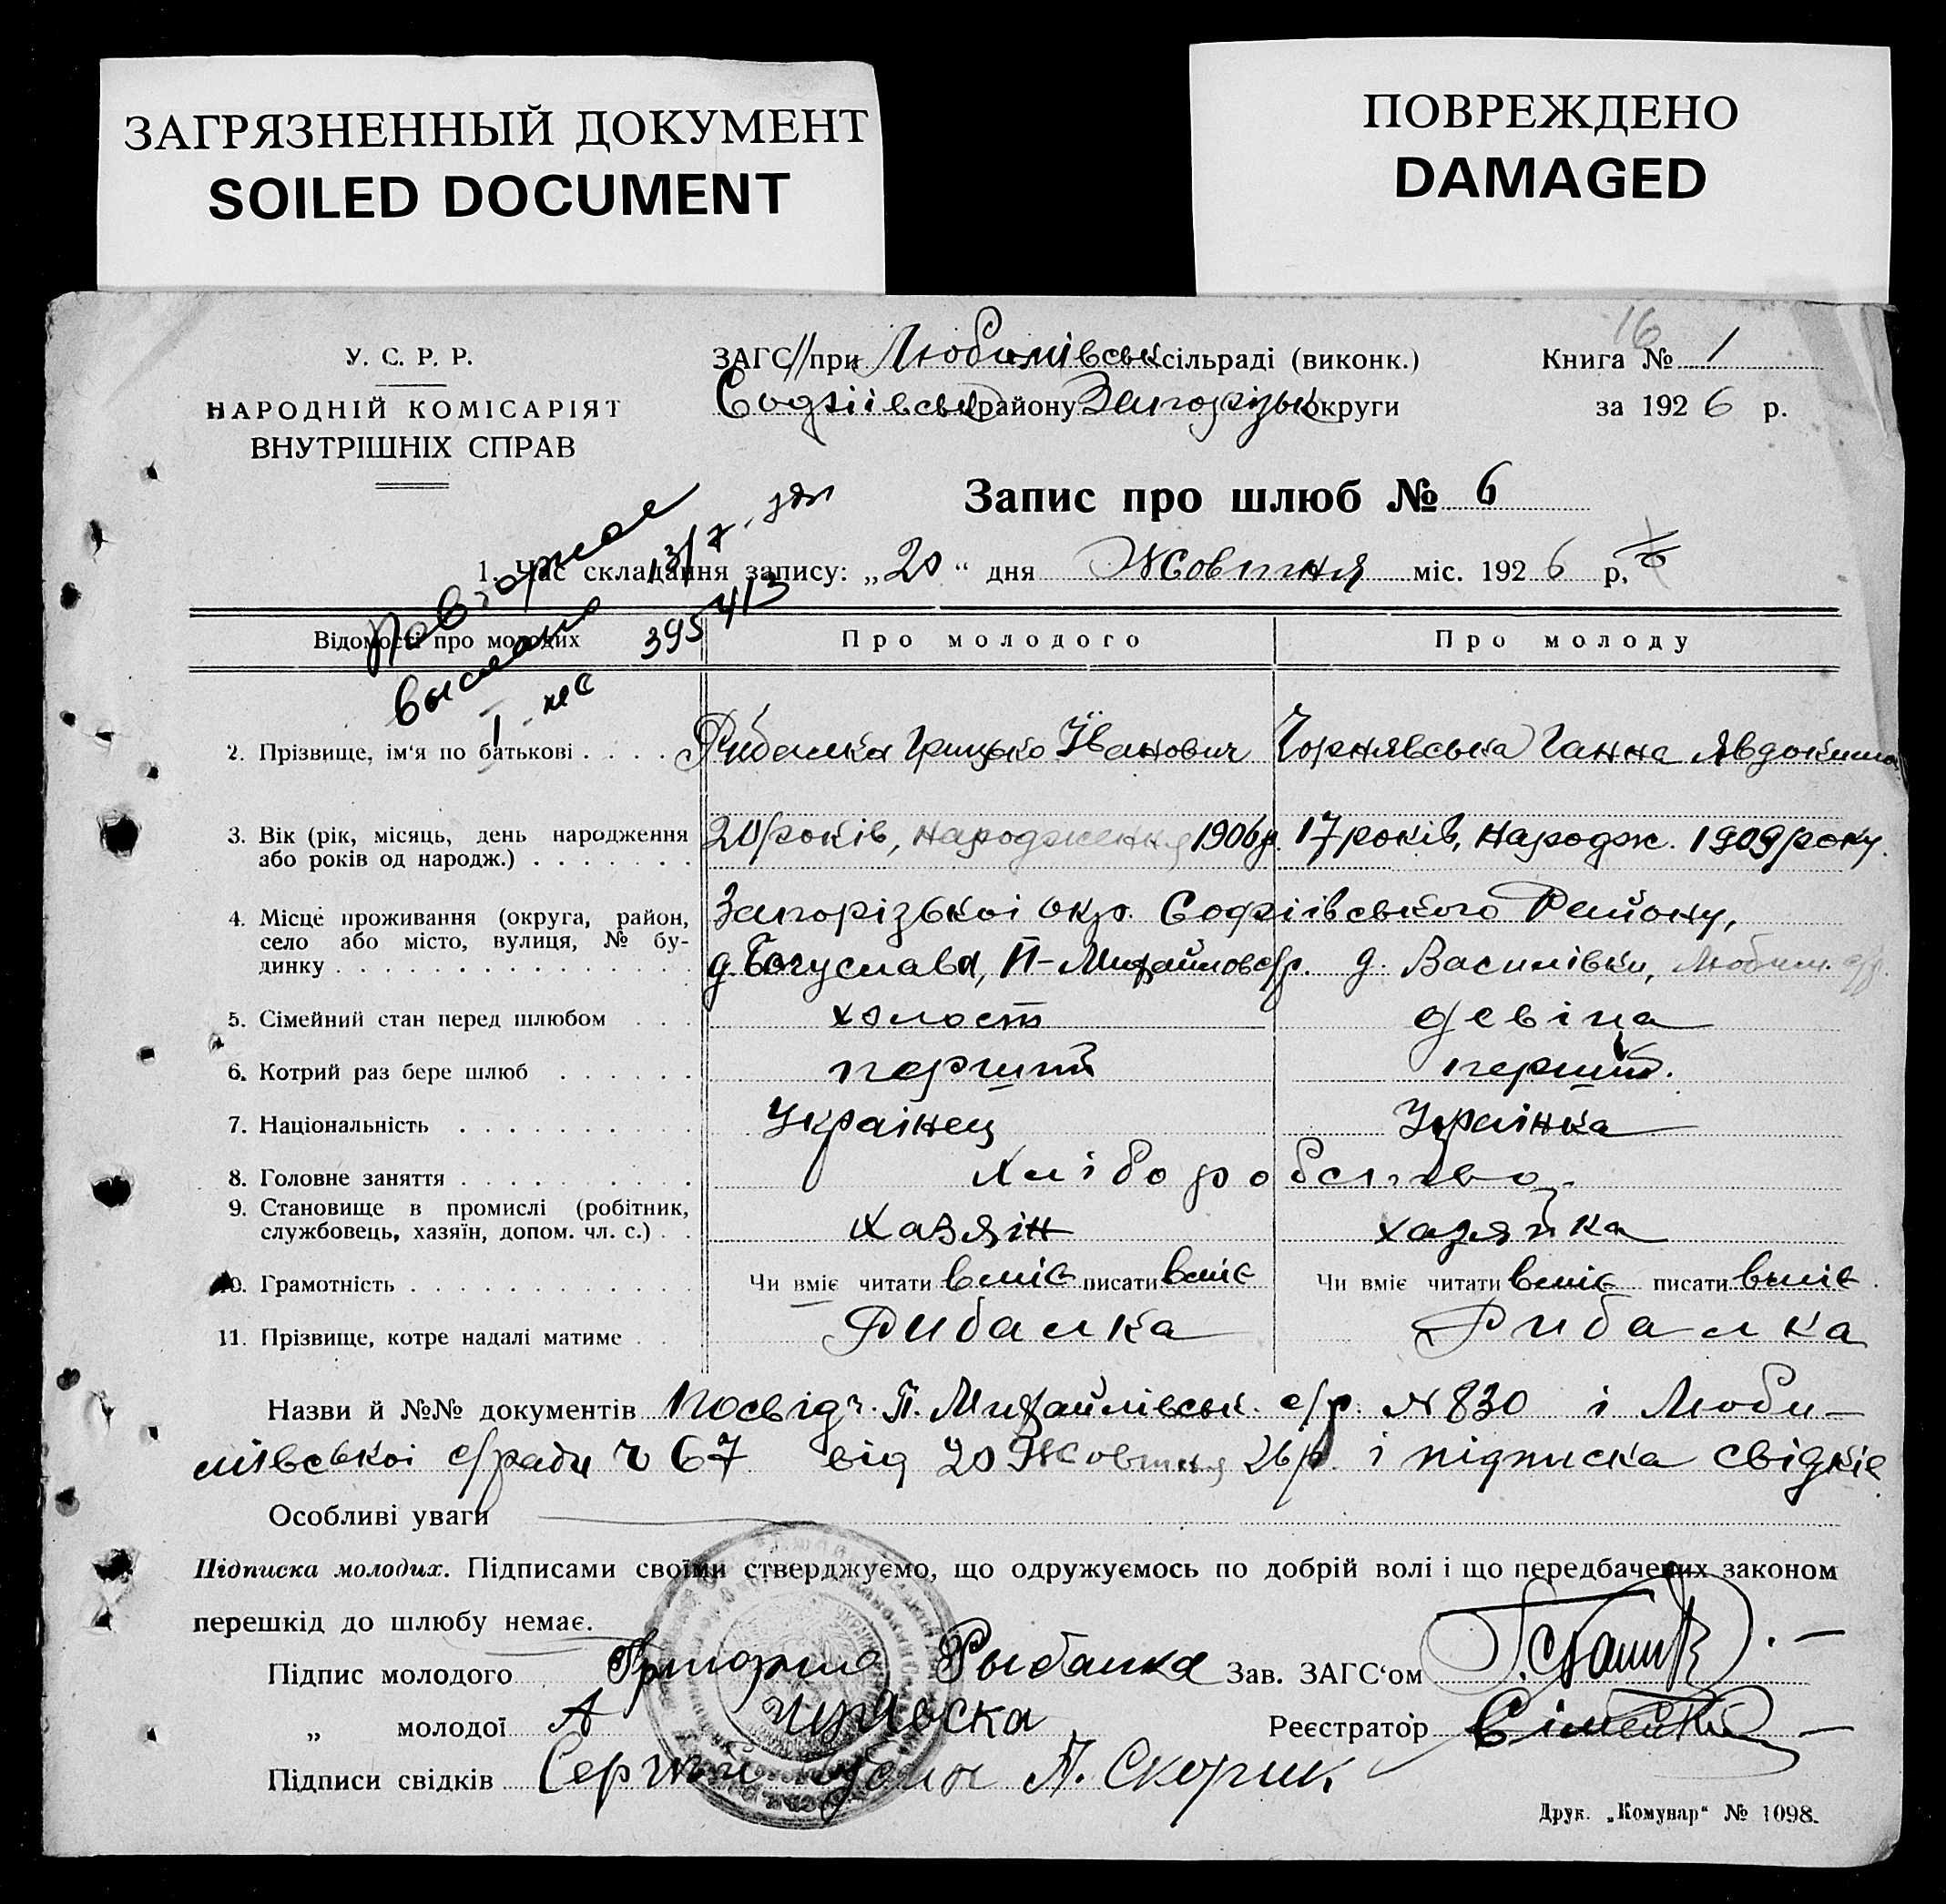 ЗАГРЯЗНЕННЫЙ ДОКУМЕНТ
SOILED DOCUMENT
ПОВРЕЖДЕНО
DAMAGED
У. С. Р. Р.
НАРОДНІЙ КОМІСАРІЯТ
ВНУТРІШНІХ СПРАВ
ЗАГС // при Любимівськ сільраді (виконк.)
Софіївськ району Запорізьк округи
16
Книга № 1
за 1926 р.
Запис про шлюб № 6
1. Час складання запису: „20“ дня Жовтня міс. 1926 р.
Повторное
выслано
13/7
395 413
Відомості про молодих Про молодого Про молоду
2. Прізвище, ім'я по батькові . . . . Рибалка Грицько Іванович Чорнявська Ганна Явдокимов
3. Вік (рік, місяць, день народження 20 років, народження 1906 р. 17 років, народж. 1909 року.
або років од народж.) . . . . . . .
4. Місце проживання (округа, район, Запорізькоі окр. Софіівського Району,
село або місто, вулиця, № бу- д. Богуслава, П-Михайловс/р. д. Василівки, Любим. с/р.
динку . . . . . . . . . . . . . . .
5. Сімейний стан перед шлюбом . . . холост девіца
6. Котрий раз бере шлюб . . . . . . перший перший.
7. Національність . . . . . . . . . . Украінец Украінка
8. Головне заняття . . . . . . . . . . Хліборобство
9. Становище в промислі (робітник,
службовець, хазяїн, допом. чл. с.) . . Хазяін хазяйка
10. Грамотність . . . . . . . . . . . . . Чи вміє читати вміє писати вміє Чи вміє читати вміє писати вміє
11. Прізвище, котре надалі матиме . . Рибалка Рибалка
Назви й №№ документів Посвідч. П. Михайлівськ. с/р. № 830 і Люби-
мівськоі с/ради ч 67 від 20 Жовтня 26 р. і підписка свідків
Особливі уваги
Підписка молодих. Підписами своїми стверджуємо, що одружуємось по добрій волі і що передбачених законом
перешкід до шлюбу немає.
Підпис молодого Рыбалка Зав. ЗАГС‘ом
„ молодої А Реєстратор
Підписи свідків Сергій П. Скорик
Друк. „Комунар“ № 1098.